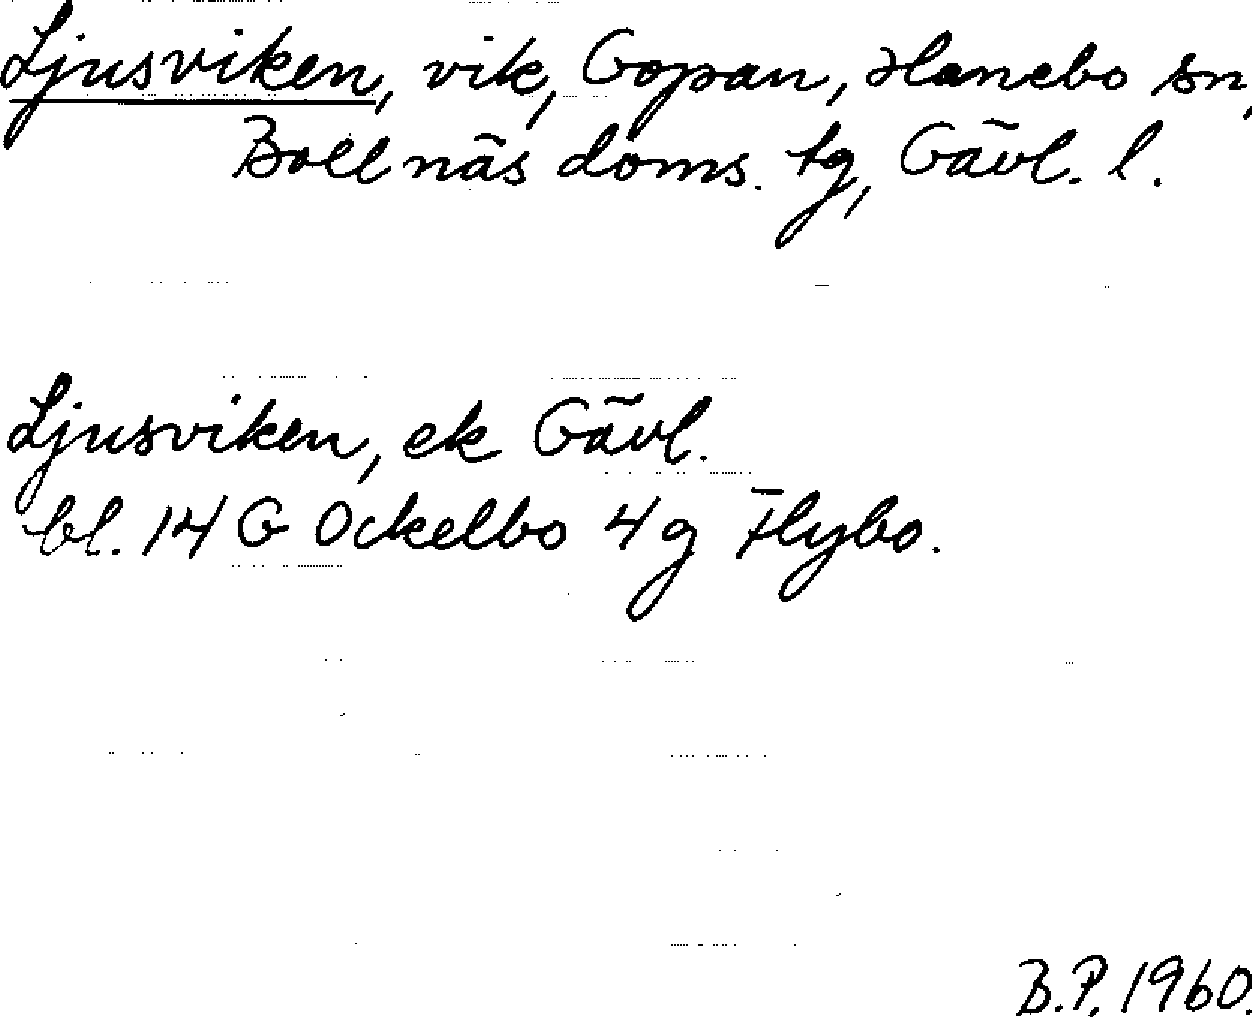 Ljusviken, vik, Gopan, Hanebo sn,
Bollnäs doms. tg, Gävl. l.
Ljusviken, ek Gävl.
bl. 14 G Ockelbo 4 g Flybo.
B.P. 1960.